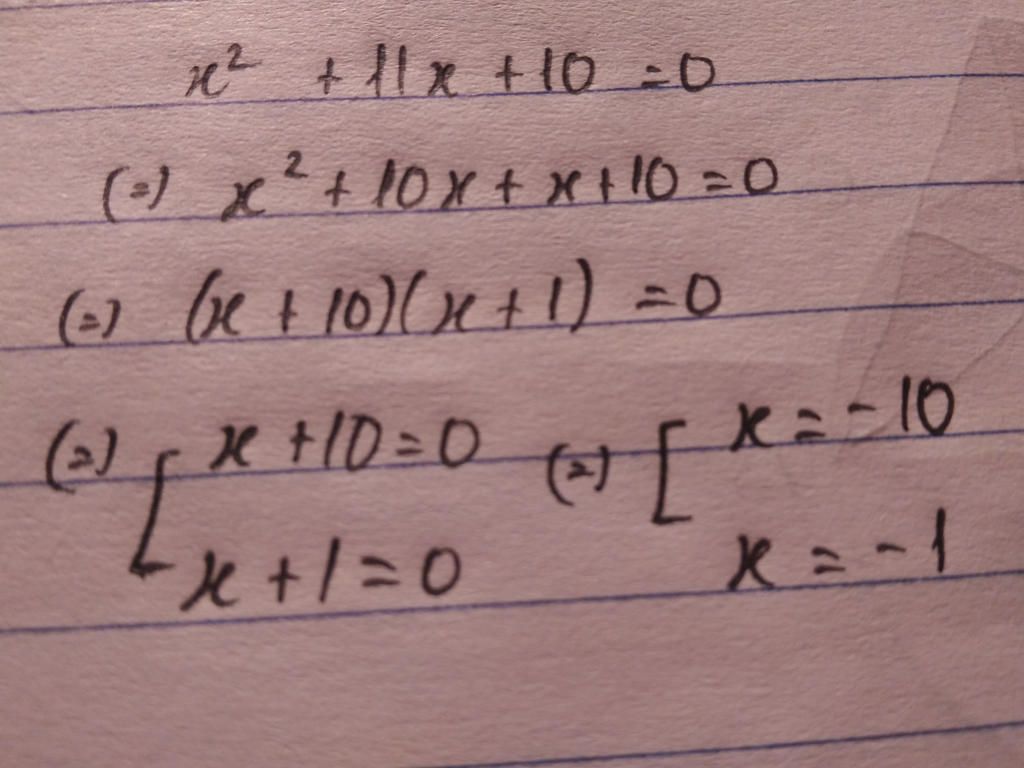 x² + 11x + 10 = 0
(=) x² + 10x + x + 10 = 0
(=) (x + 10)(x + 1) = 0
(=) [ x + 10 = 0 (=) [ x = -10
x + 1 = 0 x = -1